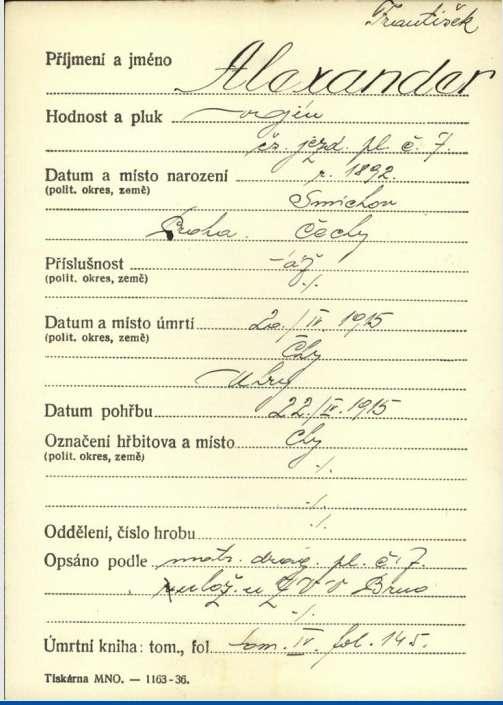 František
Příjmení a jméno Alexander
Hodnost a pluk vojín
čs. jezd. pl. č. 7.
Datum a místo narození r. 1892.
(polit. okres, země) Smíchov
Praha. Čechy
Příslušnost -áž
(polit. okres, země) ./.
Datum a místo úmrtí 20./IV. 1915
(polit. okres, země) Čhy
Uhry
Datum pohřbu 22./IV. 1915
Označení hřbitova a místo Čhy
(polit. okres, země) ./.
./.
Oddělení, číslo hrobu ./.
Opsáno podle matr. drag. pl. č. 7.
ulož. u ZVV Brno
./.
Úmrtní kniha: tom., fol. tom. IV fol. 145.
Tiskárna MNO. — 1163-36.